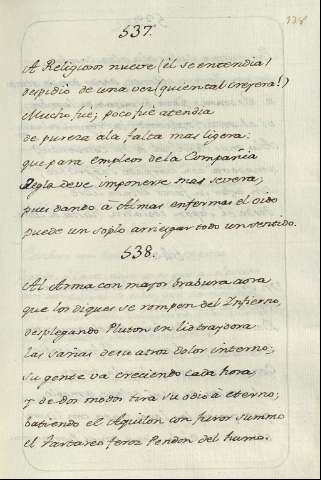 537.
A Religiosos nueve (èl se entendia)
despidiò de una vez (quien tal creyera!)
Mucho fuè; poco fuè atendia
de pureza a la falta mas ligera:
que para empleos de la Compañia
Regla deve imponerse mas severa;
pues dando à Almas enfermas el oido
puede un soplo arriesgar todo un sentido.
538.
Al Arma con mayor bravura aora
que los diques se rompen del Infierno,
desplegando Pluton en lid traydora
las sañas de su atroz dolor interno;
su gente và creciendo cada hora,
y de dos modos tira su odio à eterno;
batiendo el Aquilon con furor summo
el Tartareo feroz Pendon del humo.